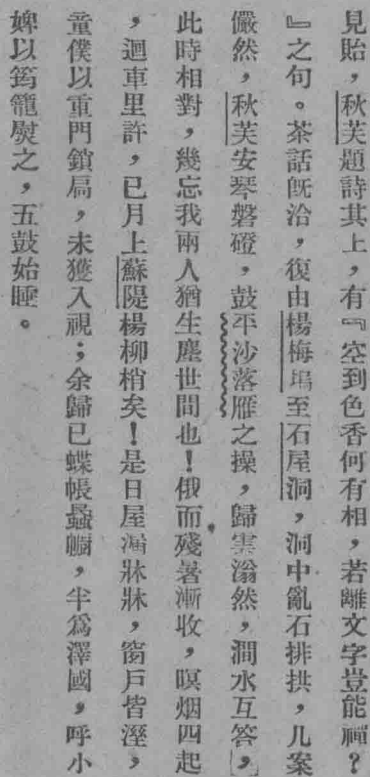 見貽，秋芙題詩其上，有『空到色香何有相，若離文字豈能禪？
』之句。茶話既洽，復由楊梅塢至石屋洞，洞中亂石排拱，几案
儼然，秋芙安琴磐磴，鼓平沙落雁之操，歸雲滃然，澗水互答，
此時相對，幾忘我兩人猶生塵世間也！俄而殘暑漸收，暝烟四起
，迴車里許，已月上蘇隄楊柳梢矣！是日屋漏牀牀，窗戶皆溼，
童僕以重門鎖扃，未獲入視；余歸已蝶帳蟁幮，半爲澤國，呼小
婢以筠籠熨之，五鼓始睡。